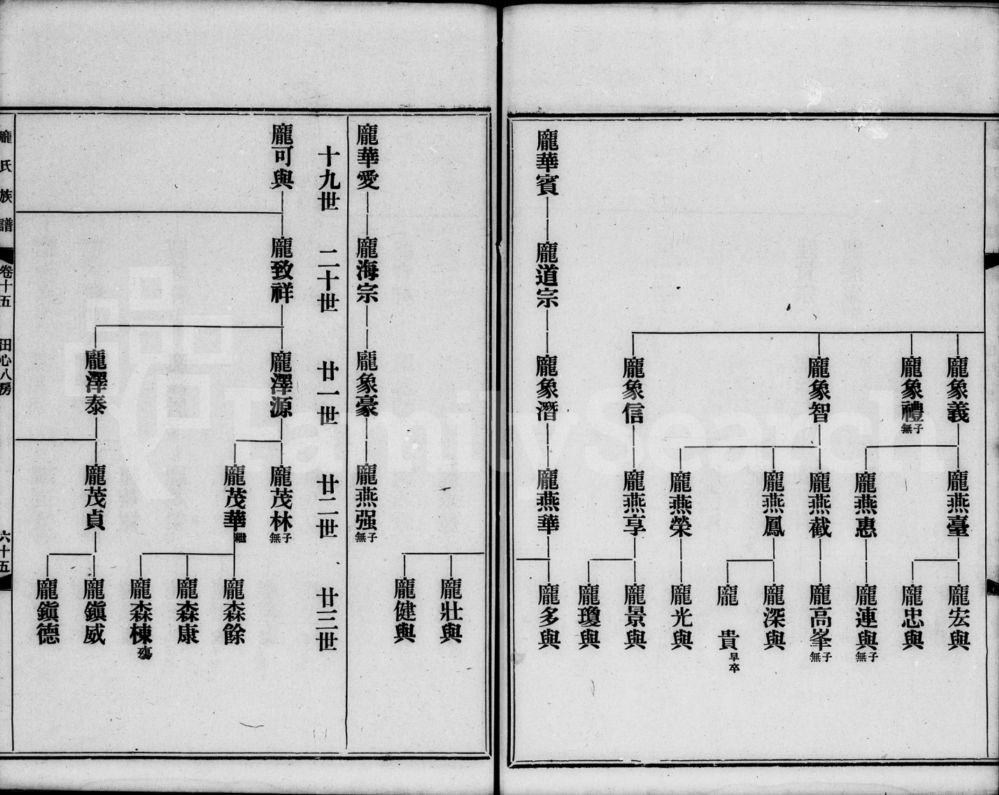 龐象義
龐燕臺
龐宏與
龐忠與
龐象禮
無子
龐燕惠
龐連與
無子
龐象智
龐燕截
龐高峯
無子
龐燕鳳
龐深與
龐貴
早卒
龐燕榮
龐光與
龐象信
龐燕享
龐景與
龐瓊與
龐華賓
龐道宗
龐象潛
龐燕華
龐多與
龐壯與
龐健與
龐華愛
龐海宗
龐象豪
龐燕强
無子
十九世
二十世
廿一世
廿二世
廿三世
龐可與
龐致祥
龐澤源
龐茂林
無子
龐茂華
繼
龐森餘
龐森康
龐森棟
殤
龐澤泰
龐茂貞
龐鎭威
龐鎭德
龐氏族譜
卷十五
田心八房
六十五
FamilySearch